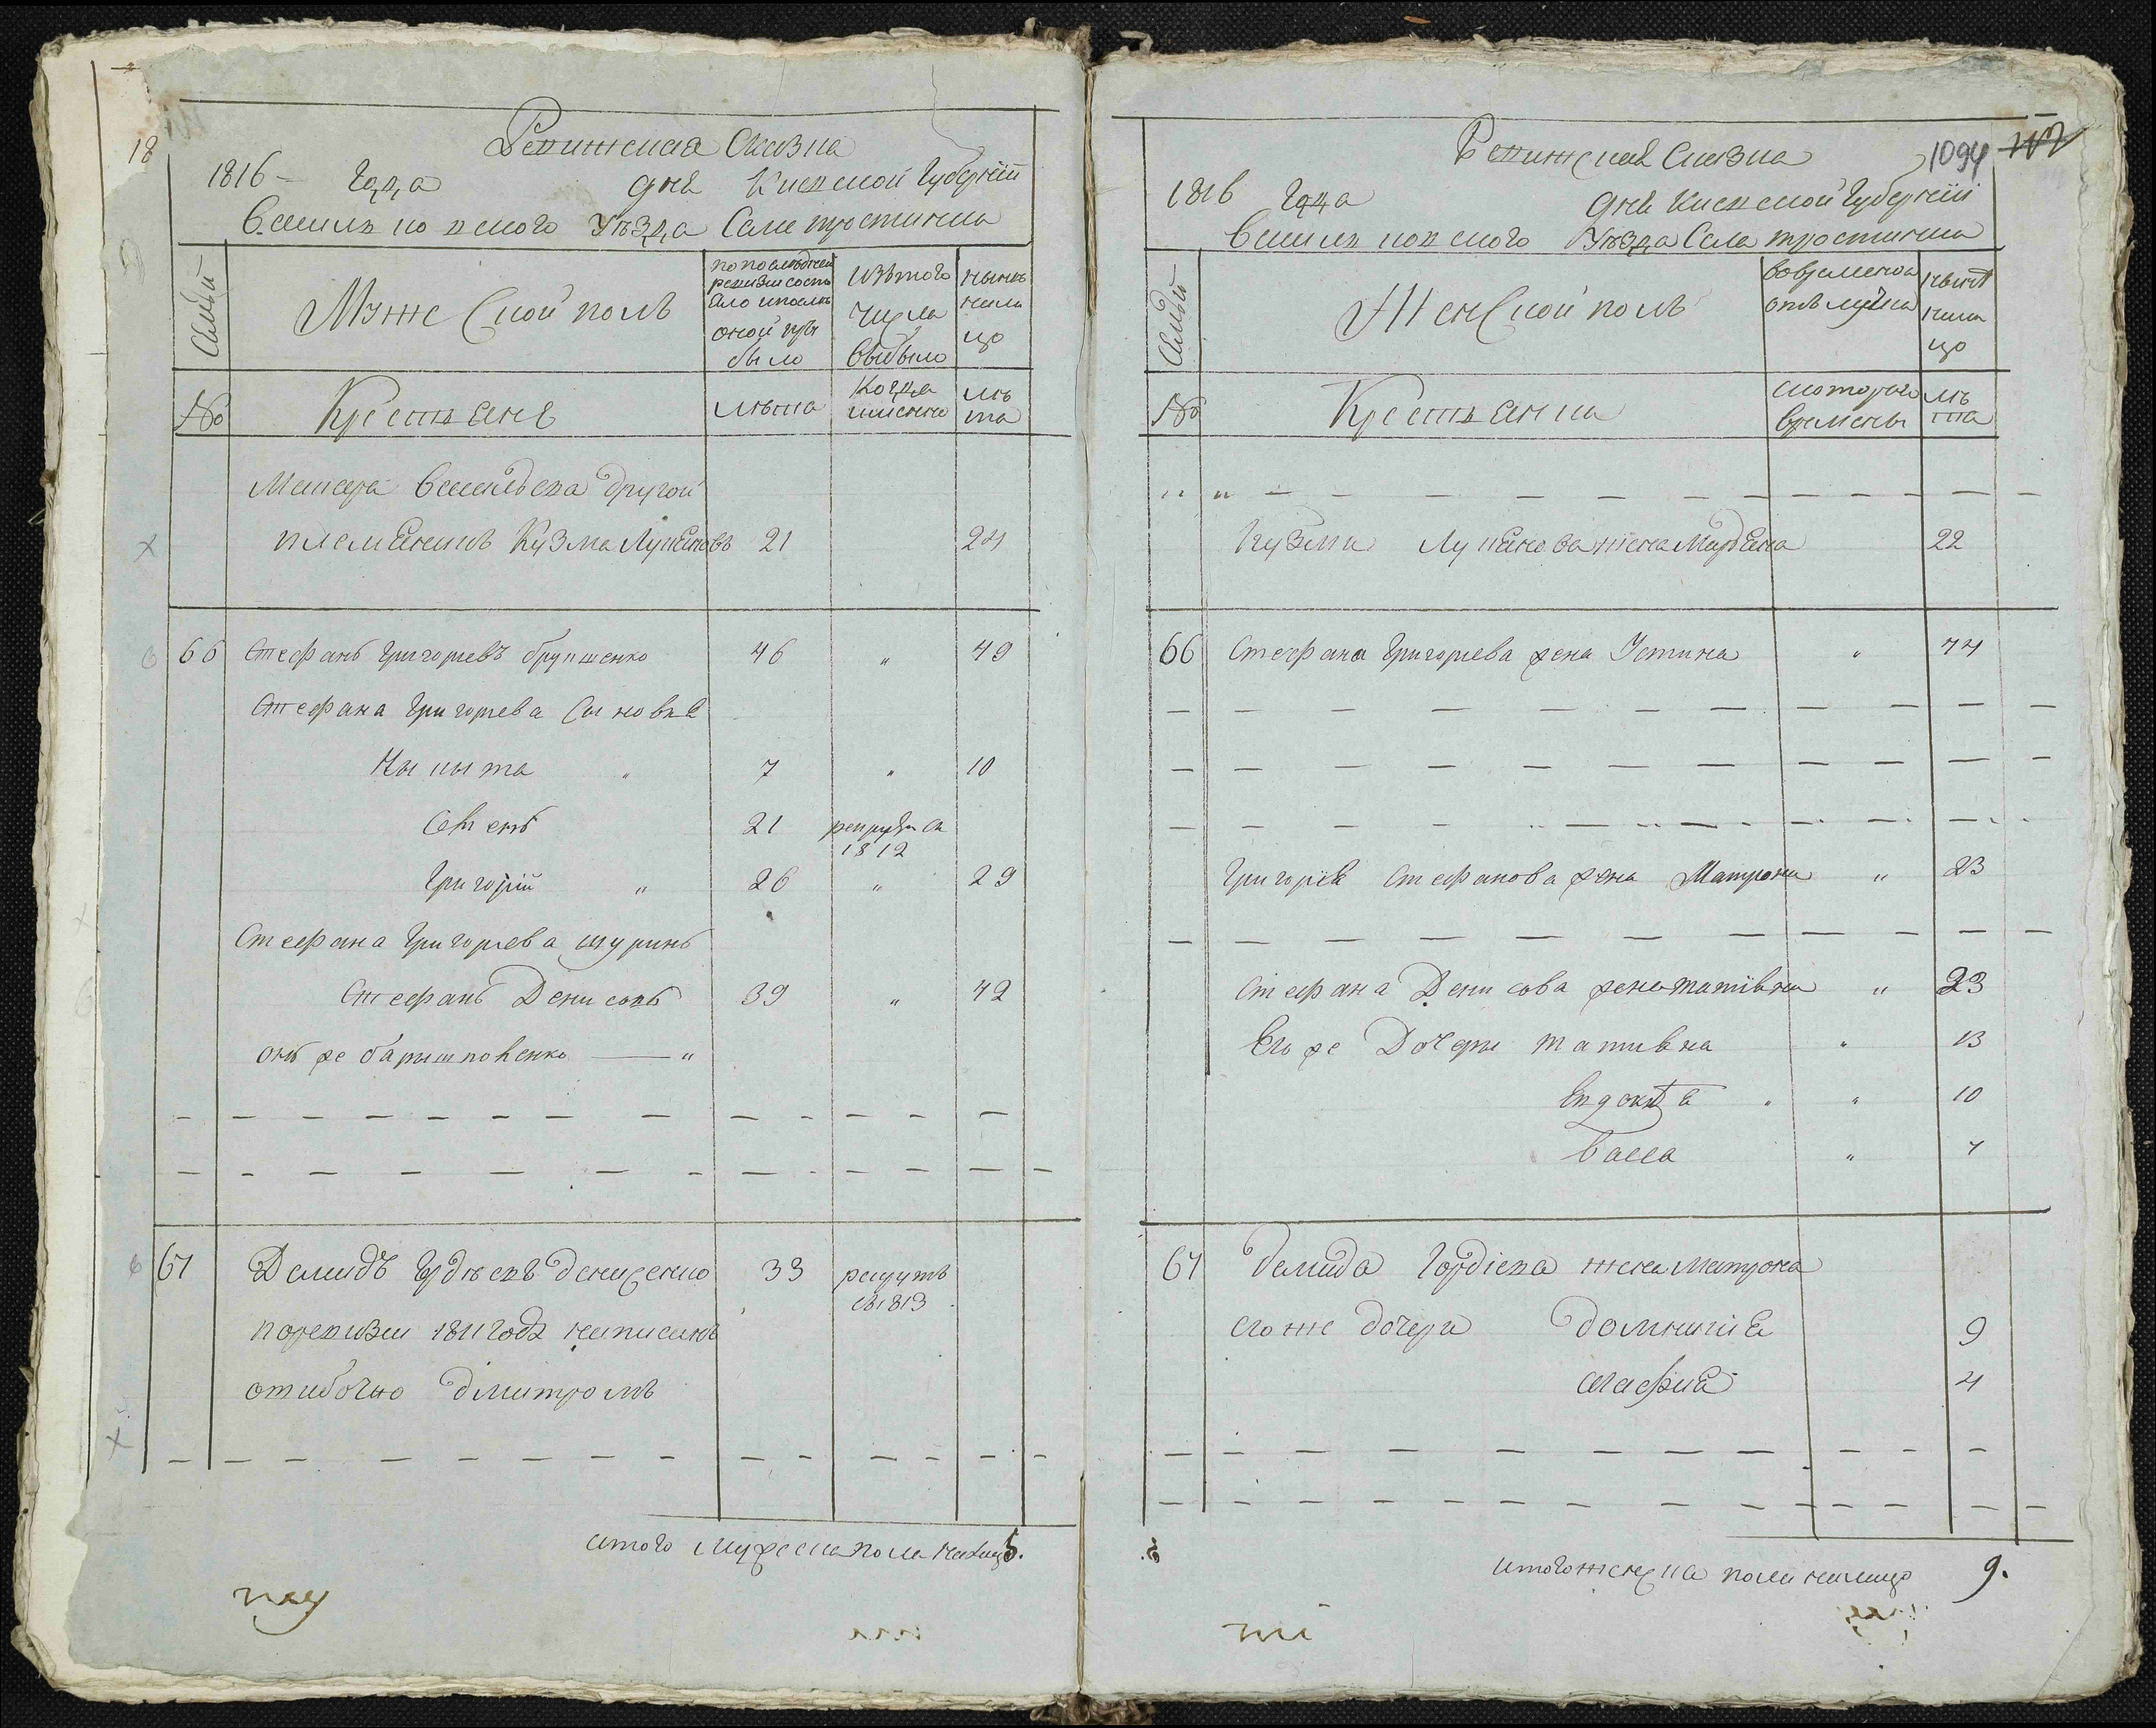 18
Ревижская Сказка
1816 — Года дня Киевской Губернїй
Василковского Уѣзда Села тростинка
Семьй
Мужеской полъ
по последней ревизии состояло и после оной прибыло
Изътого числа выбыло
нынѣ налицо
№
Крестьяне
лѣта
Когда именно
лѣта
Макара Васильева другой
племянникъ Кузма Лукяновъ 21 24
66 Стефанъ Григорьевъ брупшенко 46 " 49
Стефана Григорьева Сыновья
Ныкыта " 7 " 10
Семенъ 21 рекрутъ са 1812
Григорїй " 26 " 29
Стефана Григорьева шуринъ
Стефанъ Денисовъ 39 " 42
онъ же барышповенко — "
67 Демидъ Гордѣевъ денисенко 33 рекрутъ св1813
поревизии 1811 года написанъ
ошибочно дмитромъ
итого мужеска пола налицо 5.
1094
Ревижская Сказка
1816 Года дня Киевской Губернїй
Василковского Уѣзда Села тростинка
Семьй
Женской полъ
вовременой отлучке
нынѣ налицо
№
Крестьянка
скоторого времены
лѣта
Кузмы Лукянова жена Марьяна 22
66 Стефана Григорьева жена Устина " 44
Григорїя Стефанова жена Матрона " 23
Стефана Денисова жена татїяна " 23
Его же Дочеры татияна " 13
Евдокѣя " " 10
Васса " 7
67 демида Гордїева жена матрона
его же дочери домникїя 9
агафия 4
итого женска пола налицо 9.